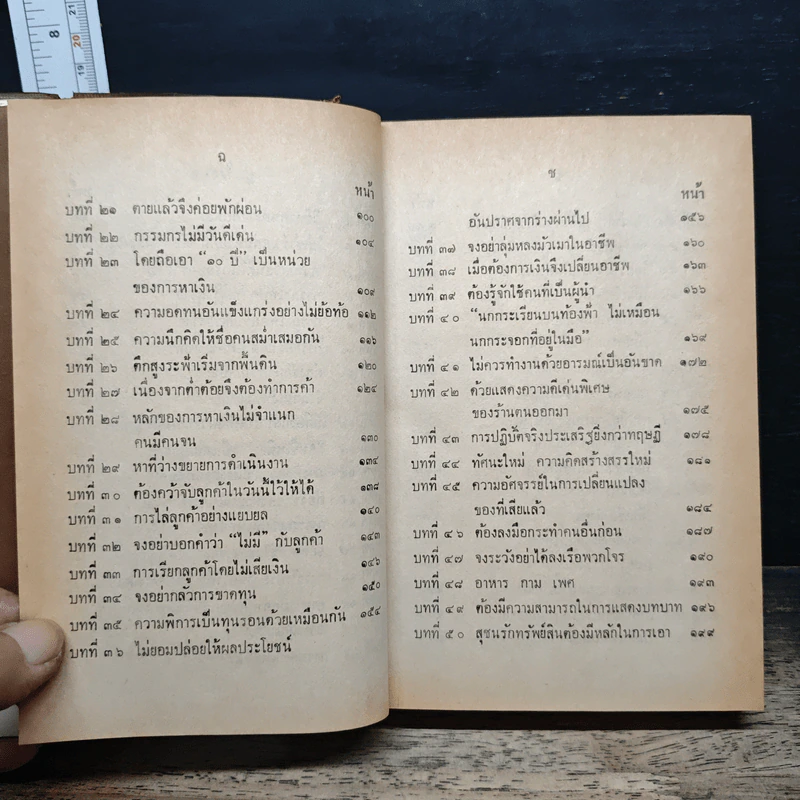 8
21
20
19
ฉ
หน้า
บทที่ ๒๑ ตายแล้วจึงค่อยพักผ่อน ๑๐๐
บทที่ ๒๒ กรรมกรไม่มีวันดีเด่น ๑๐๔
บทที่ ๒๓ โดยถือเอา “๑๐ ปี” เป็นหน่วย
ของการหาเงิน ๑๐๙
บทที่ ๒๔ ความอดทนอันแข็งแกร่งอย่างไม่ย้อท้อ ๑๑๒
บทที่ ๒๕ ความนึกคิดให้ซื่อคนสม่ำเสมอกัน ๑๑๖
บทที่ ๒๖ ตึกสูงระฟ้าเริ่มจากพื้นดิน ๑๒๐
บทที่ ๒๗ เนื่องจากต่ำต้อยจึงต้องทำการค้า ๑๒๔
บทที่ ๒๘ หลักของการหาเงินไม่จำแนก
คนมีคนจน ๑๓๐
บทที่ ๒๙ หาที่ว่างขยายการดำเนินงาน ๑๓๔
บทที่ ๓๐ ต้องคว้าจับลูกค้าในวันนี้ไว้ให้ได้ ๑๓๘
บทที่ ๓๑ การไล่ลูกค้าอย่างแยบยล ๑๔๐
บทที่ ๓๒ จงอย่าบอกคำว่า “ไม่มี” กับลูกค้า ๑๔๓
บทที่ ๓๓ การเรียกลูกค้าโดยไม่เสียเงิน ๑๔๖
บทที่ ๓๔ จงอย่ากลัวการขาดทุน ๑๕๐
บทที่ ๓๕ ความพิการเป็นทุนรอนด้วยเหมือนกัน ๑๕๔
บทที่ ๓๖ ไม่ยอมปล่อยให้ผลประโยชน์
ช
หน้า
อันปราศจากร่างผ่านไป ๑๕๖
บทที่ ๓๗ จงอย่าลุ่มหลงมัวเมาในอาชีพ ๑๖๐
บทที่ ๓๘ เมื่อต้องการเงินจึงเปลี่ยนอาชีพ ๑๖๓
บทที่ ๓๙ ต้องรู้จักใช้คนที่เป็นผู้นำ ๑๖๖
บทที่ ๔๐ “นกกระเรียนบนท้องฟ้า ไม่เหมือน
นกกระจอกที่อยู่ในมือ” ๑๖๙
บทที่ ๔๑ ไม่ควรทำงานด้วยอารมณ์เป็นอันขาด ๑๗๒
บทที่ ๔๒ ด้วยแสดงความดีเด่นพิเศษ
ของร้านตนออกมา ๑๗๕
บทที่ ๔๓ การปฏิบัติจริงประเสริฐยิ่งกว่าทฤษฎี ๑๗๘
บทที่ ๔๔ ทัศนะใหม่ ความคิดสร้างสรรใหม่ ๑๘๑
บทที่ ๔๕ ความอัศจรรย์ในการเปลี่ยนแปลง
ของที่เสียแล้ว ๑๘๔
บทที่ ๔๖ ต้องลงมือกระทำคนอื่นก่อน ๑๘๗
บทที่ ๔๗ จงระวังอย่าได้ลงเรือพวกโจร ๑๙๐
บทที่ ๔๘ อาหาร กาม เพศ ๑๙๓
บทที่ ๔๙ ต้องมีความสามารถในการแสดงบทบาท ๑๙๖
บทที่ ๕๐ สุซนรักทรัพย์สินต้องมีหลักในการเอา ๑๙๙